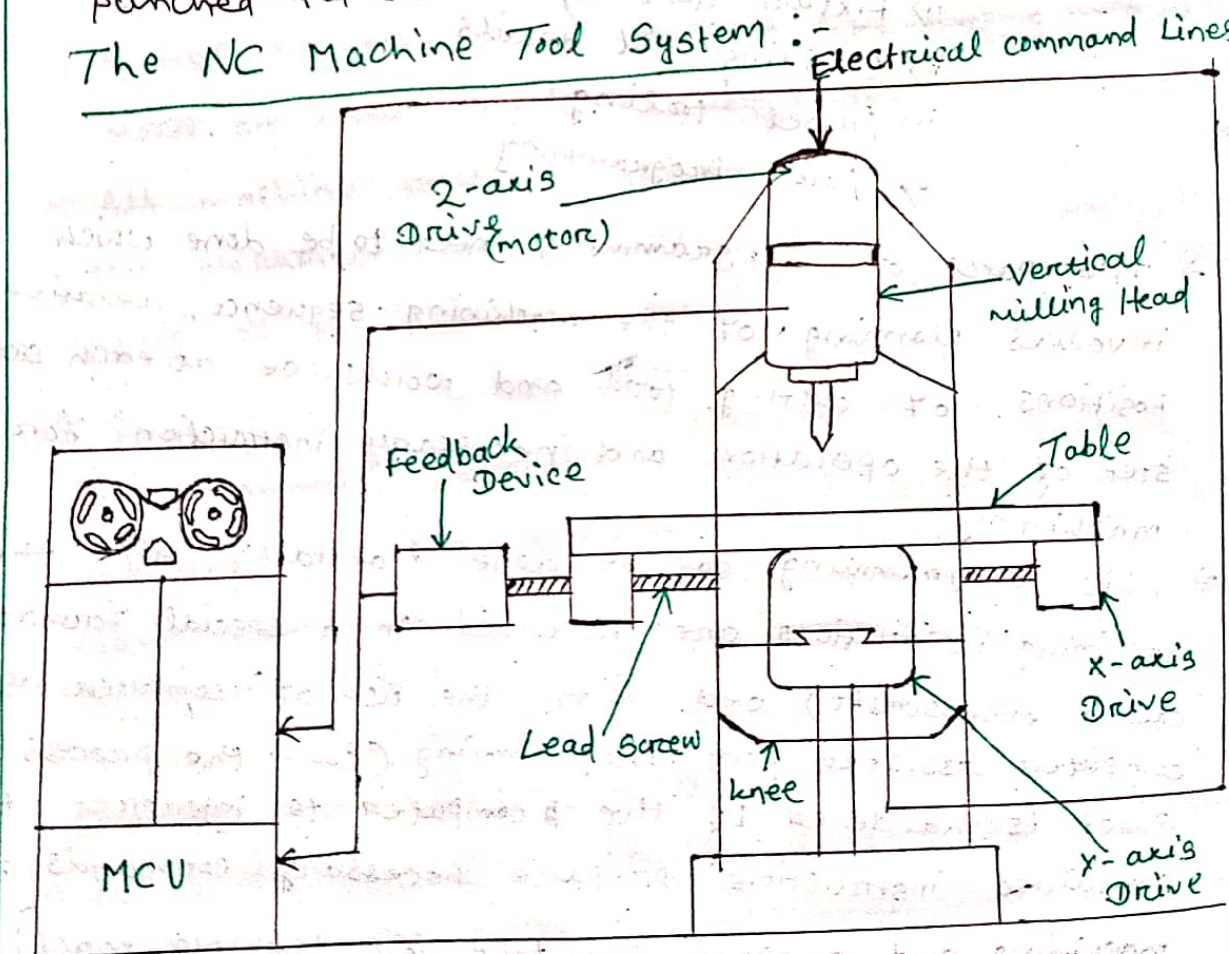 The NC Machine Tool System :-
Electrical command Lines
Z-axis
Drive
(motor)
Vertical
milling Head
Feedback
Device
Table
X-axis
Drive
Lead Screw
knee
Y-axis
Drive
MCU